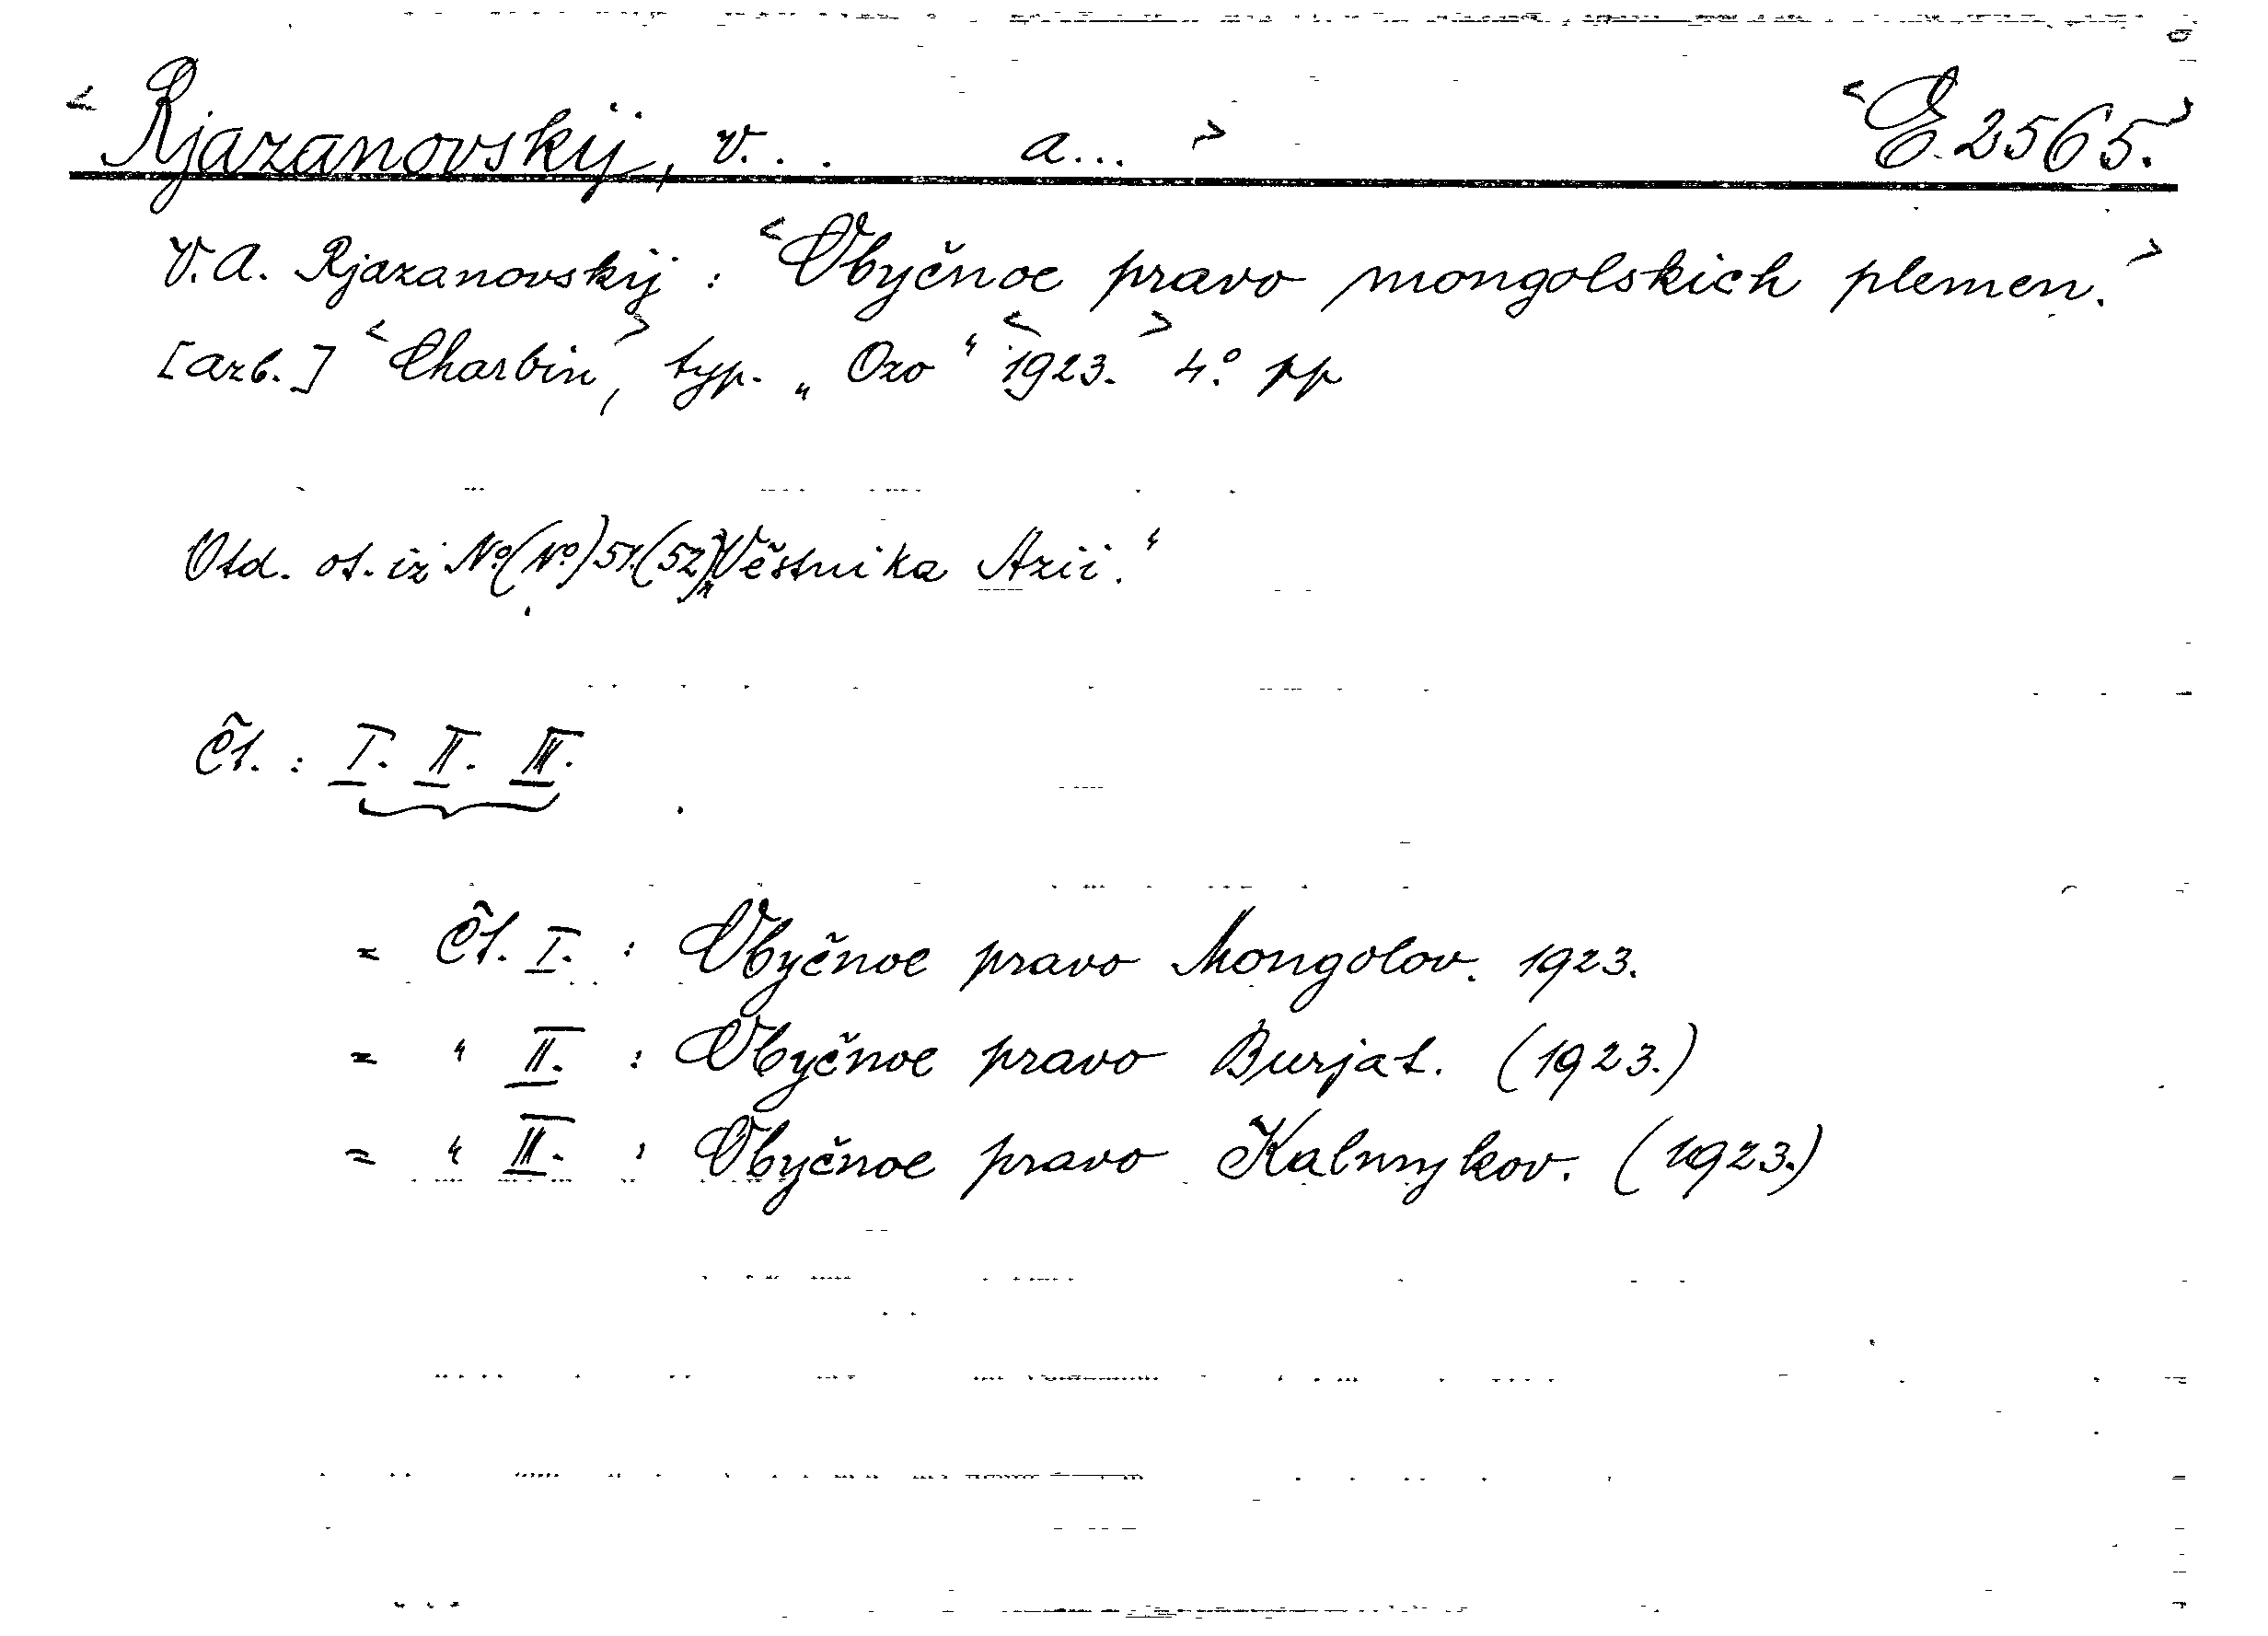 < Rjazanovskij, V... A... > < E. 2565. >
V. A. Rjazanovskij : < Obyčnoe pravo mongolskich plemen. >
[arb.] < Charbin >, typ. „ Ozo “ < 1923. > 4.º pp
Otd. ot. iz Nº (Nº) 51. (52) „Věstnika Azii.“
Čt. : I. II. III.
= Čt. I. : Obyčnoe pravo Mongolov. 1923.
= “ II. : Obyčnoe pravo Burjat. (1923.)
= “ III. : Obyčnoe pravo Kalmykov. (1923.)